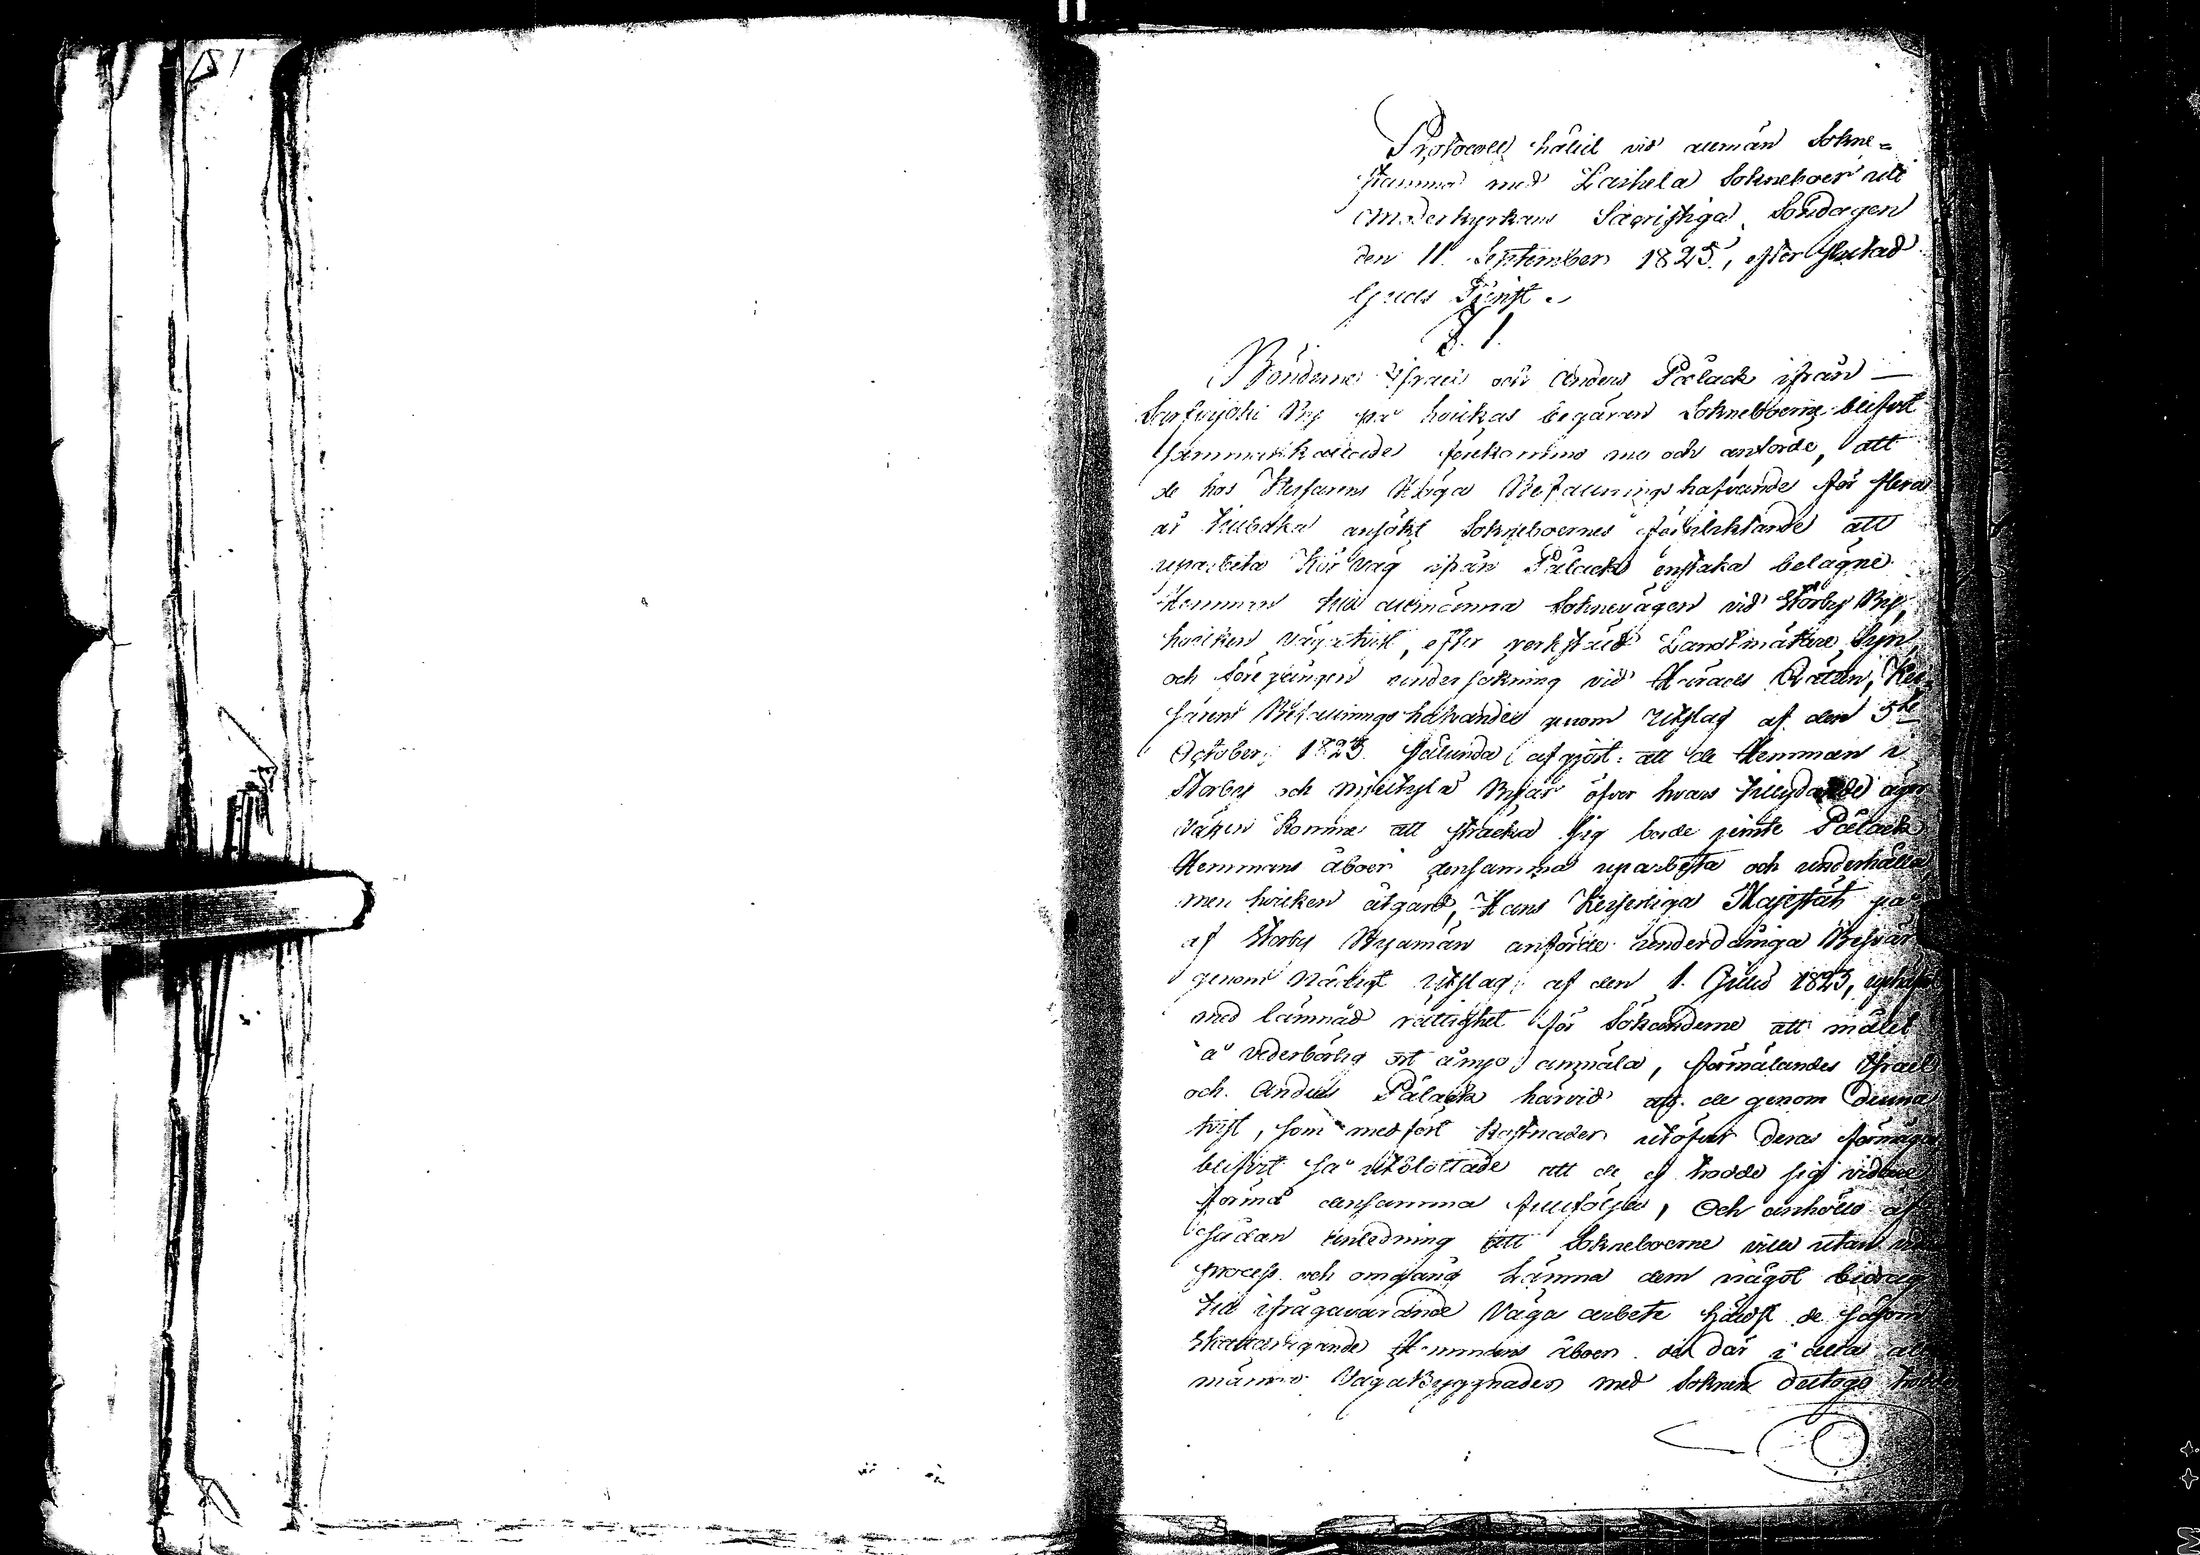 Protocoll hållit vid allmän Sokne=
stämma med Laihela Sokneboer uti
Moderkyrkans Sacristiga Söndagen
den 11 September 1825, efter slutad
Guds Tjenst.
§. 1.
Bönderne Israel och Anders Pålack ifrån
By på hvilkas begäran Sokneboerne blifvit
sammankallade förekommo nu och anförde, att
de hos Kejsarens Höga Befallningshafvande för flera
år tilbaka ansökt Sokneboernes förpliktande att
uparbeta Körväg ifrån Pålack enstaka belägne
Hemman till allmänna Soknevägen vid Storby By,
hvilken vägatvist, efter verkstäld Landtmätare Syn,
och föregången undersökning vid Härads Rätten, Kej=
sarens Befallningshafvandes genom Utslag af den 3
October 1823 sålunda afgjort: att de Hemman i
Storby och Byar öfver hvars ägor
vägen komme att sträcka sig borde jemte Pålack
Hemmans åboer densamma uparbeta och underhålla,
men hvilken åtgärd, Hans Kejserliga Majestät på
af Storby Byamän anförde underdåniga Besvär
genom Nådigt Utslag af den 1. Julii 1825, uphäft
med lämnad rättighet för Sökanderne att målet
å vederbörlig ort ånyo anmäla, förmälandes Israel
och Anders Pålack härvid att de genom denna
tvist, som medfört kostnader utöfver deras förmåga
blifvit så utblottade att de ej trodde sig vidare
förmå densamma fullfölja, Och anhöllo af
sådan anledning att Sokneboerne ville utan
process och omgång Lämna dem något bidrag
till ifrågavarande Väga arbete hälst de såsom
Hemmans åboer och där i alla all
männa Vägabyggnader med Soknen deltogo